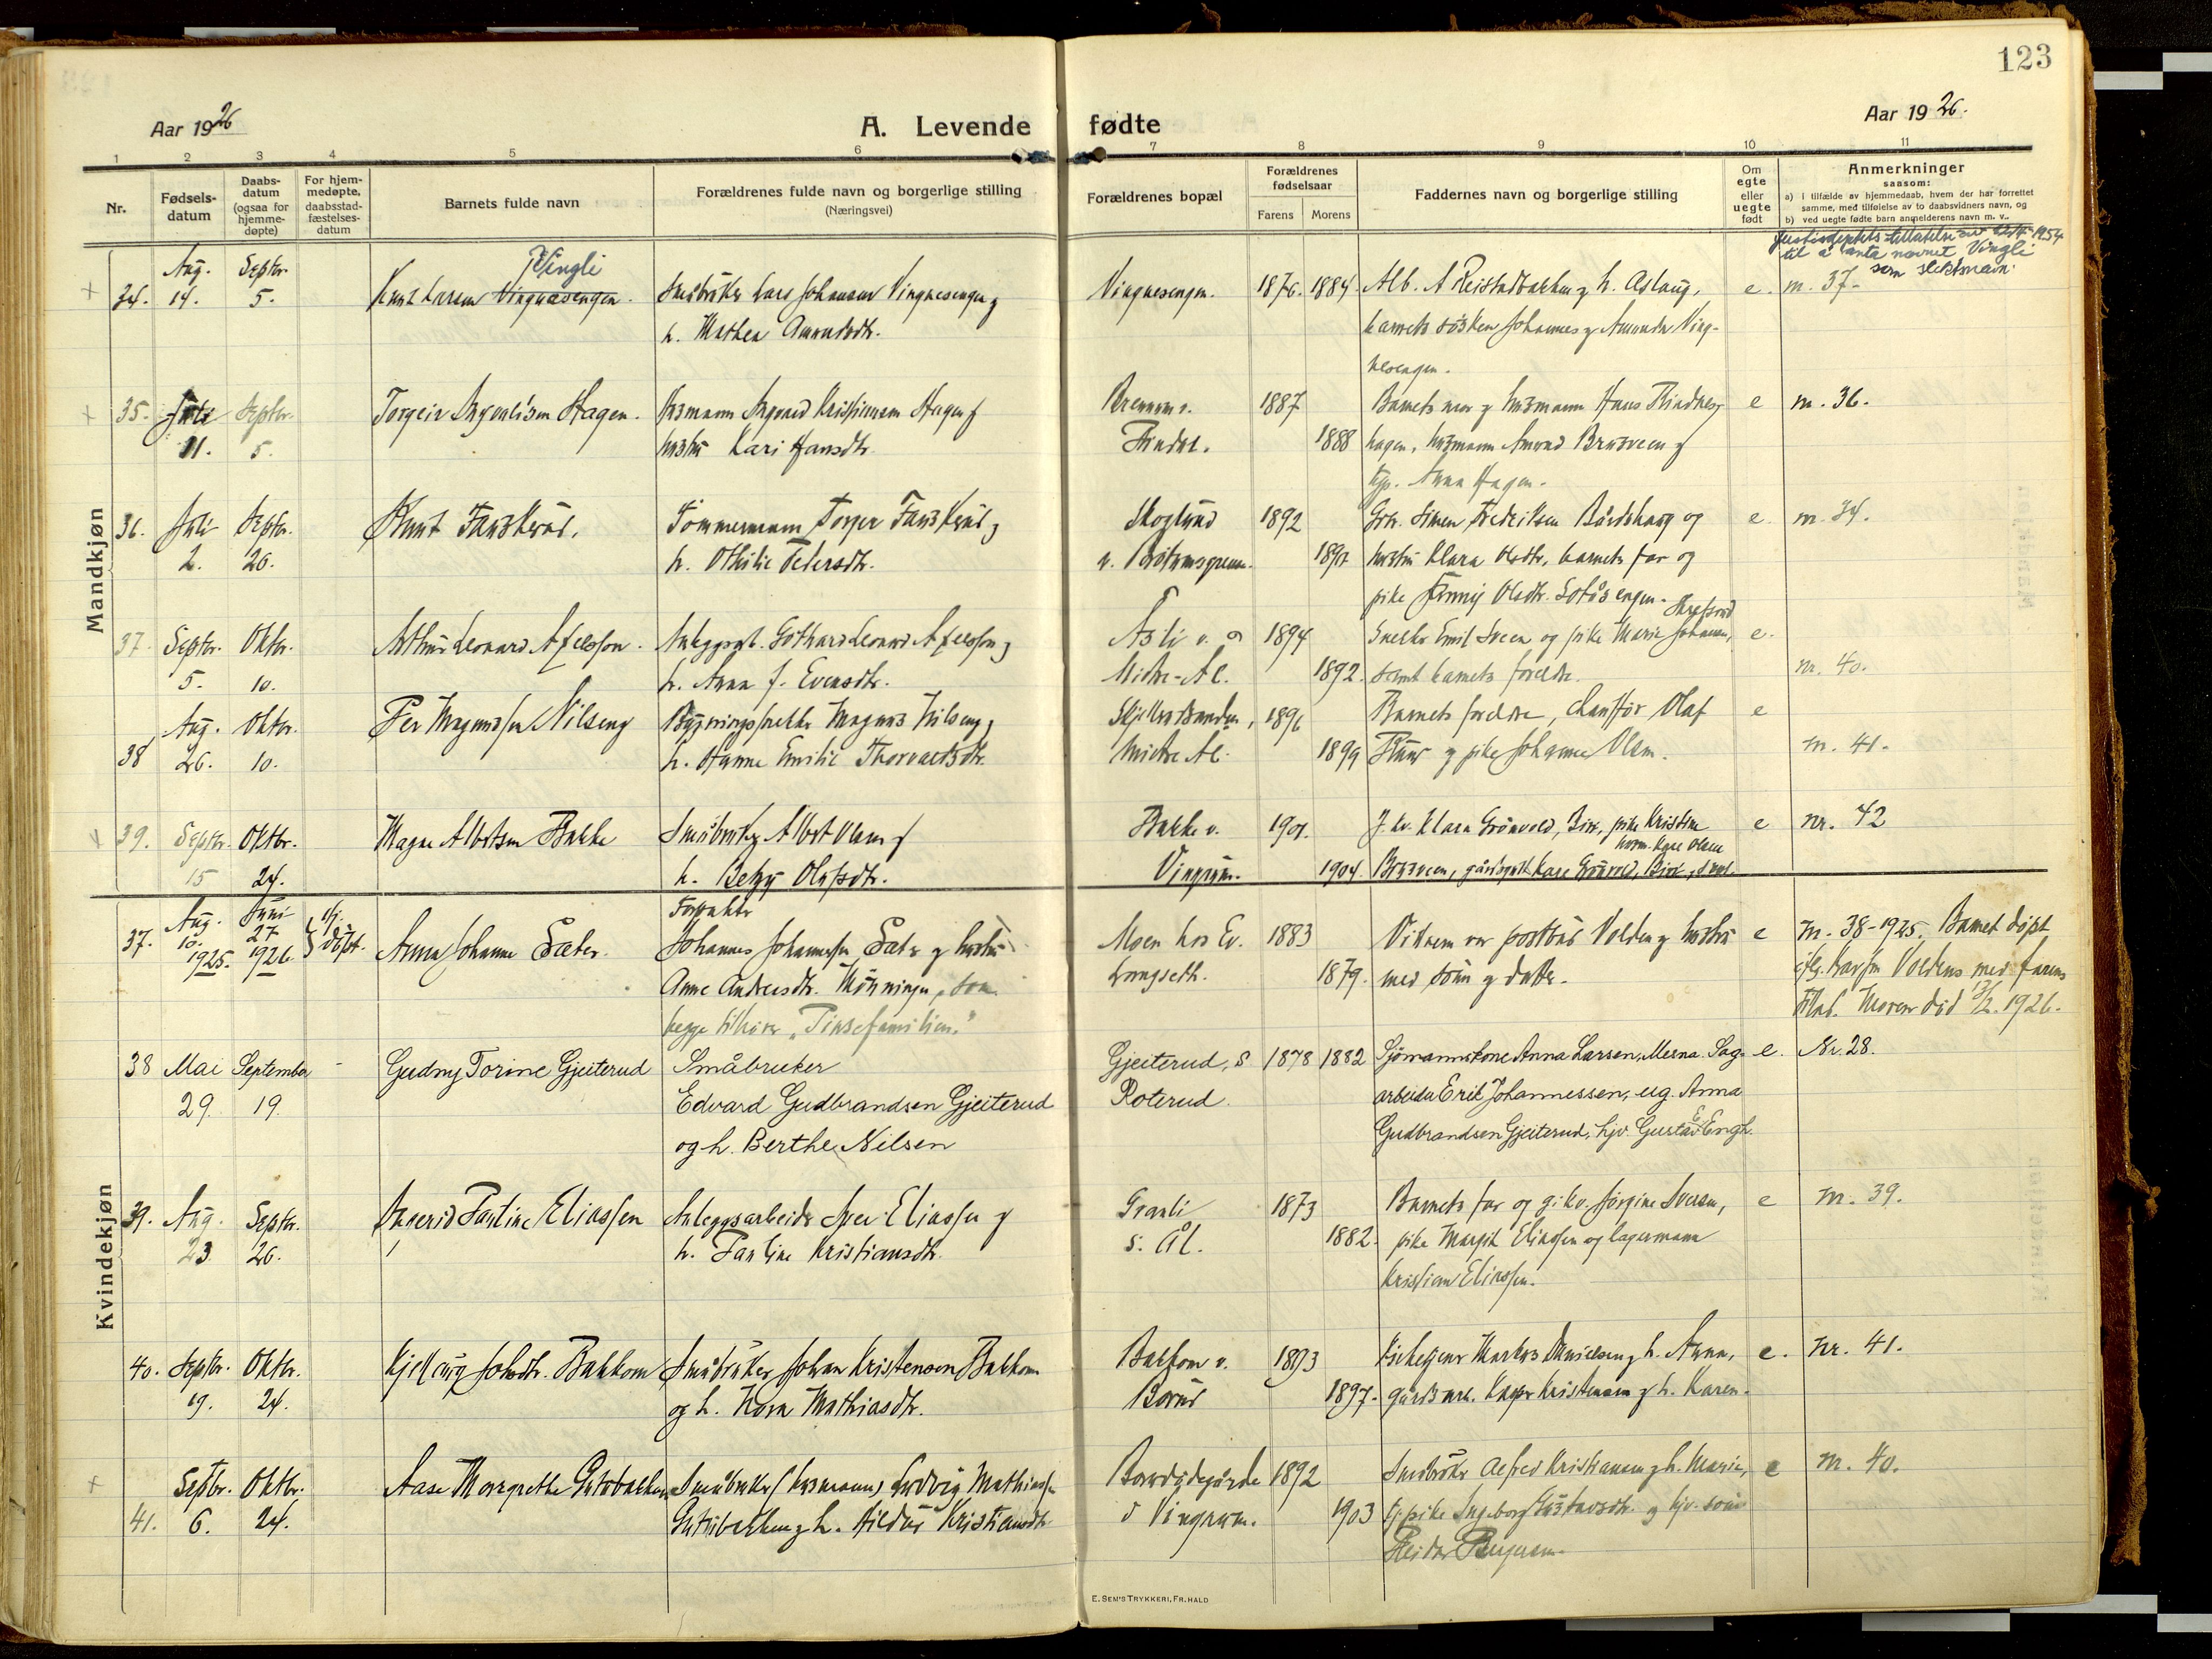 123
Aar 1926
A. Levende fødte
Aar 1926.
1 2 3 4 5 6 7 8 9 10 11
Nr.
Fødsels-
datum
Daabs-
datum
(ogsaa for
hjemme-
døpte)
For hjem-
medøpte,
daabsstad-
fæstelses-
datum
Barnets fulde navn
Forældrenes fulde navn og borgerlige stilling
(Næringsvei)
Forældrenes bopæl
Forældrenes
fødselsaar
Farens Morens
Faddernes navn og borgerlige stilling
Om
egte
eller
uegte
født
Anmerkninger
saasom:
a) i tilfælde av hjemmedaab, hvem der har forrettet
samme, med tilføielse av to daabsvidners navn, og
b) ved uegte fødte barn anmelderens navn m. v..
1954
til å anta navnet Vingli
som slektsnavn.
Mandkjøn
Vingli
34. Aug. 14. Septbr. 5. Knut Larsen Vingnesengen. Småbruker Lars Johansen Vingnesengen og
h. Mathea Amundsdtr.
Vingnesengen. 1876. 1884. Alb. A Reistadbakken og h. Aslaug,
barnets søsken Johannes og Amunda Ving-
nesengen.
e. nr. 37.
35. Juli 11. Septbr. 5. Torgeir Hagen. Husmann Kristiansen Hagen og
hustru Kari Hansdtr.
1887 1888 Barnets mor og husmann Hans
hagen, husmann Amund Brusveen og
Anna Hagen.
e nr. 36.
36. Juli 2. Septbr. 26. Knut Tømmermann
h. Othilie Pedersdtr.
Skoglund 1892 Simen Fredriksen og
hustru Klara Olsdtr. barnets far og
pike Olsdtr.
e. nr. 34.
37. Septbr. 5. Oktbr. 10. Arthur Leonard Axelsson. Anleggsarb. Gothard Leonard Axelsson og
h. Anna J. Evensdtr.
Åsli v.
Midtre-Ål. 1894 1892. Snekker Emil Sveen og pike Marie Johansen,
samt barnets foreldre.
e. nr. 40.
38 Aug. 26. Oktbr. 10. Per Magnussen Nilseng Magnus Nilseng og
h. Hanne Emilie Thorvaldsdtr.
Midtre Ål. 1896 1899 Barnets foreldre, chauffør Olaf
og pike Johanne Olsen.
e nr. 41.
39. Septbr. 15 Oktbr. 24. Magne Albertsen Bakke Småbruker Albert Olsen og
h. Betzy Olufsdtr.
Bakke v.
Vingrom. 1901. 1904. J. kv. Klara Grønvold, Birk, pike Kristine
Brusveen, Kåre Grønvold, Birk,
e nr. 42
Kvindekjøn
37. Aug. 10. 1925. Juni 27 1926 døpt. Anna Johanne Sæter. Forpakter
Johannes Johannessen Sæter og hustru
Anne Andreasdtr. Thønningen, som
begge tilhører "Pinsefamilien."
Moen hos Ev.
Longseth. 1883 1879. Vidnene var postbud Volden og hustru
med sønn og datter.
e nr. 38-1925. Barnet døpt
Voldens med farens
Moren død 13/2. 1926.
38 Mai 29. September 19. - Gudny Torine Gjeiterud Småbruker
Edvard Gudbrandsen Gjeiterud
og h. Berthe Nilsen
Gjeiterud, s
Roterud. 1878 1882 Sjømannskone Anna Larsen, Mesna. Sag-
arbeider Erik Johannessen, ug. Anna
Gudbrandsen Gjeiterud, hjv. Gustav E. Engh.
e. Nr. 28.
39. Aug. 23 Septbr. 26. Ingerid Pauline Eliassen Anleggsarbeider Iver Eliassen og
h. Pauline Kristiansdtr.
Granli
s. Ål. 1873 1882. Barnets far og g. kv. Jørgine Iversen,
pike Margit Eliassen og lagermann
Kristian Eliassen.
e nr. 39.
40. Septbr. 19. Oktbr. 24. Kjellaug Johsdtr. Bakkom Småbruker Johan Kristensen Bakkom
og h. Nora Mathiasdtr.
Bakkom v.
Borud 1893 1897. Kirketjener Markus Danielsen og h. Anna,
gårdsarb. Kasper Kristensen og h. Karen.
e. nr. 41.
41. Septbr. 6. Oktbr. 24. Aase Margrethe Gutubakken Småbruker (husmann) Ludvig Mathiassen
Gutubakken og h. Hildur Kristiansdtr.
v Vingrom. 1892 1903 Småbruker Alfred Kristiansen og h. Marie,
tj. pike Ingeborg Gustavsdtr. og hjv. sønn
Reidar
e nr. 40.
E. SEM'S TRYKKERI, FR.HALD